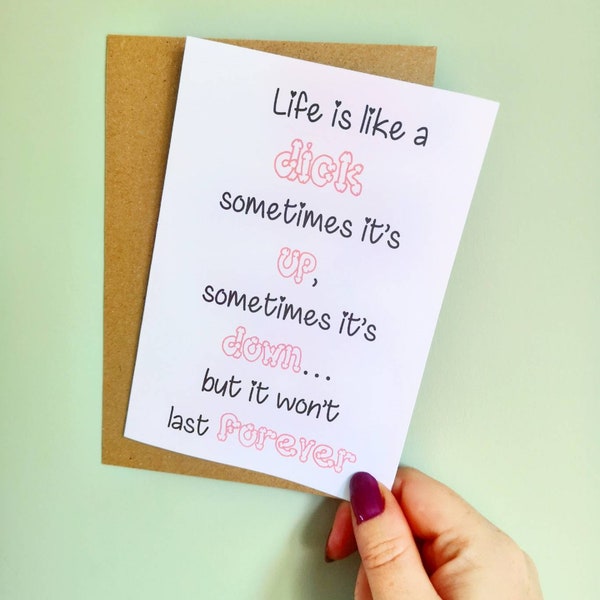 Life is like a
dick
sometimes it's
UP,
sometimes it's
down...
but it won't
last forever